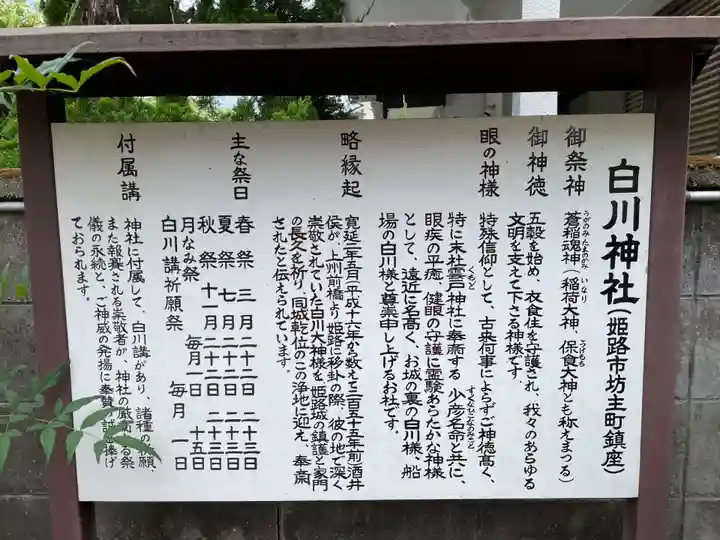 白川神社(姫路市坊主町鎮座)
御祭神
蒼稲魂神(稲荷大神、保食大神とも称えまつる)
うがのみたまのかみ いなり うけもち
御神徳
五穀を始め、衣食住を守護され、我々のあらゆる
文明を支えて下さる神様です。
眼の神様
特殊信仰として、古来何事によらずご神徳高く、
特に末社雲戸神社に奉斎する 少彦名命と共に、
くもど すくなひこなのみこと
眼疾の平癒、健眼の守護に霊験あらたかな神様
として、遠近に名高く、お城の裏の白川様、船
場の白川様と尊崇申し上げるお社です。
略縁起
寛延二年五月(平成十六年から数えて二百五十五年前)酒井
侯が、上州前橋より姫路に移封の際、彼の地で深く
崇敬されていた白川大神様を、姫路城の鎮護と家門
の長久を祈り、同城乾位のこの浄地に迎え、奉斎
されたと伝えられています。
主な祭日
春祭 三月 二十二日 二十三日
夏祭 七月 二十二日 二十三日
秋祭 十一月 二十二日 二十三日
月なみ祭 毎月一日 十五日
白川講祈願祭 毎月 一日
付属講
神社に付属して、白川講があり、諸種の祈願、
また報賽される崇敬者が、神社の厳粛なる祭
儀の永続と、ご神威の発揚に奉賛の誠を捧げ
ておられます。